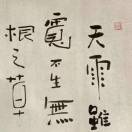 天雨雖
寬不生無
根之草